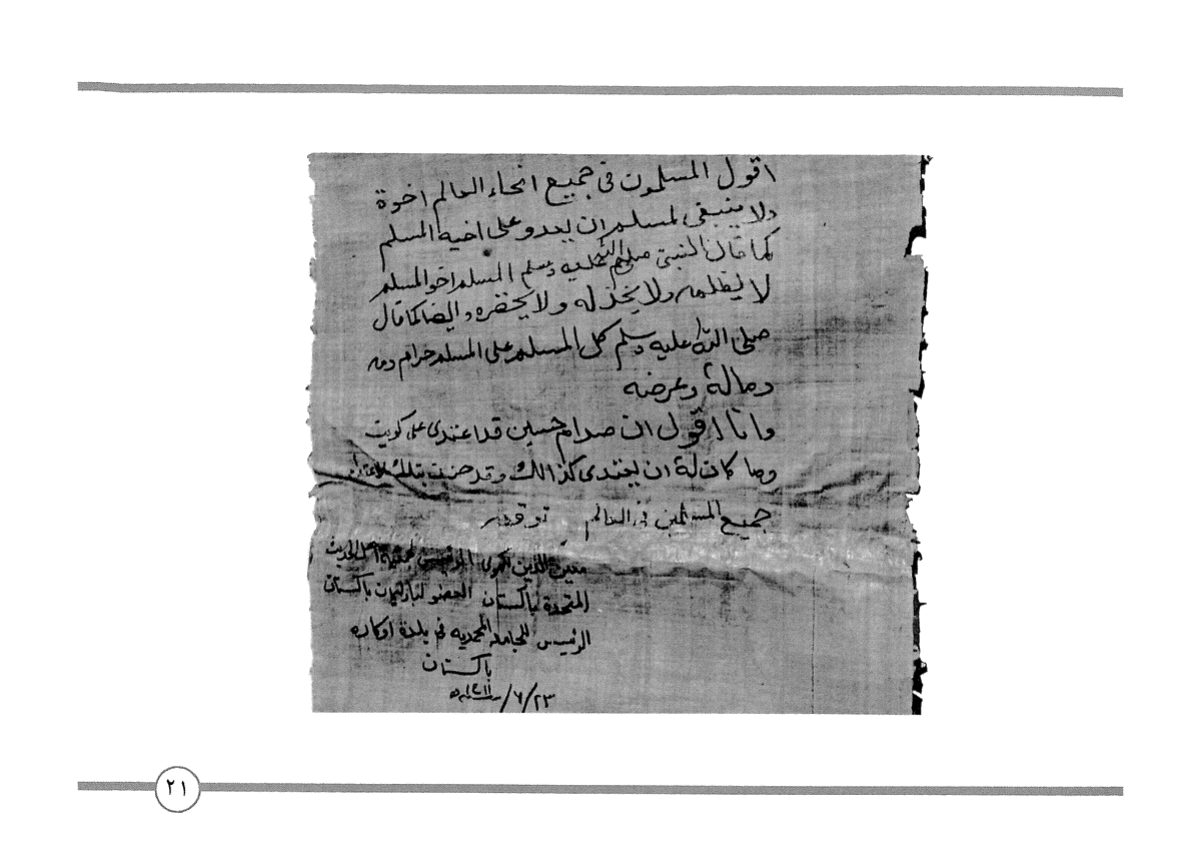 اقول المسلمون فى جميع انحاء العالم اخوة
ولا ينبغى لمسلم ان يعدو على اخيه المسلم
كما قال النبى صلى الله عليه وسلم المسلم اخو المسلم
لا يظلمه ولا يخذله ولا يحقره وايضا كما قال
صلى الله عليه وسلم كل المسلم على المسلم حرام دمه
ومالة وعرضه
وانا اقول ان صدام حسين قد اعتدى على كويت
وما كان لة ان يعتدى كذالك وقد بتلك
جميع المسلمين فى العالم
معين الدين لكهوى الرئيس لجمعية اهل الحديث
المتحدة باكستان العضو لبارليمان باكستان
الرئيس للجامعه المحمديه فى بلدة اوكاره
باكستان
٢٣/٦/١٤١١ه
٢١